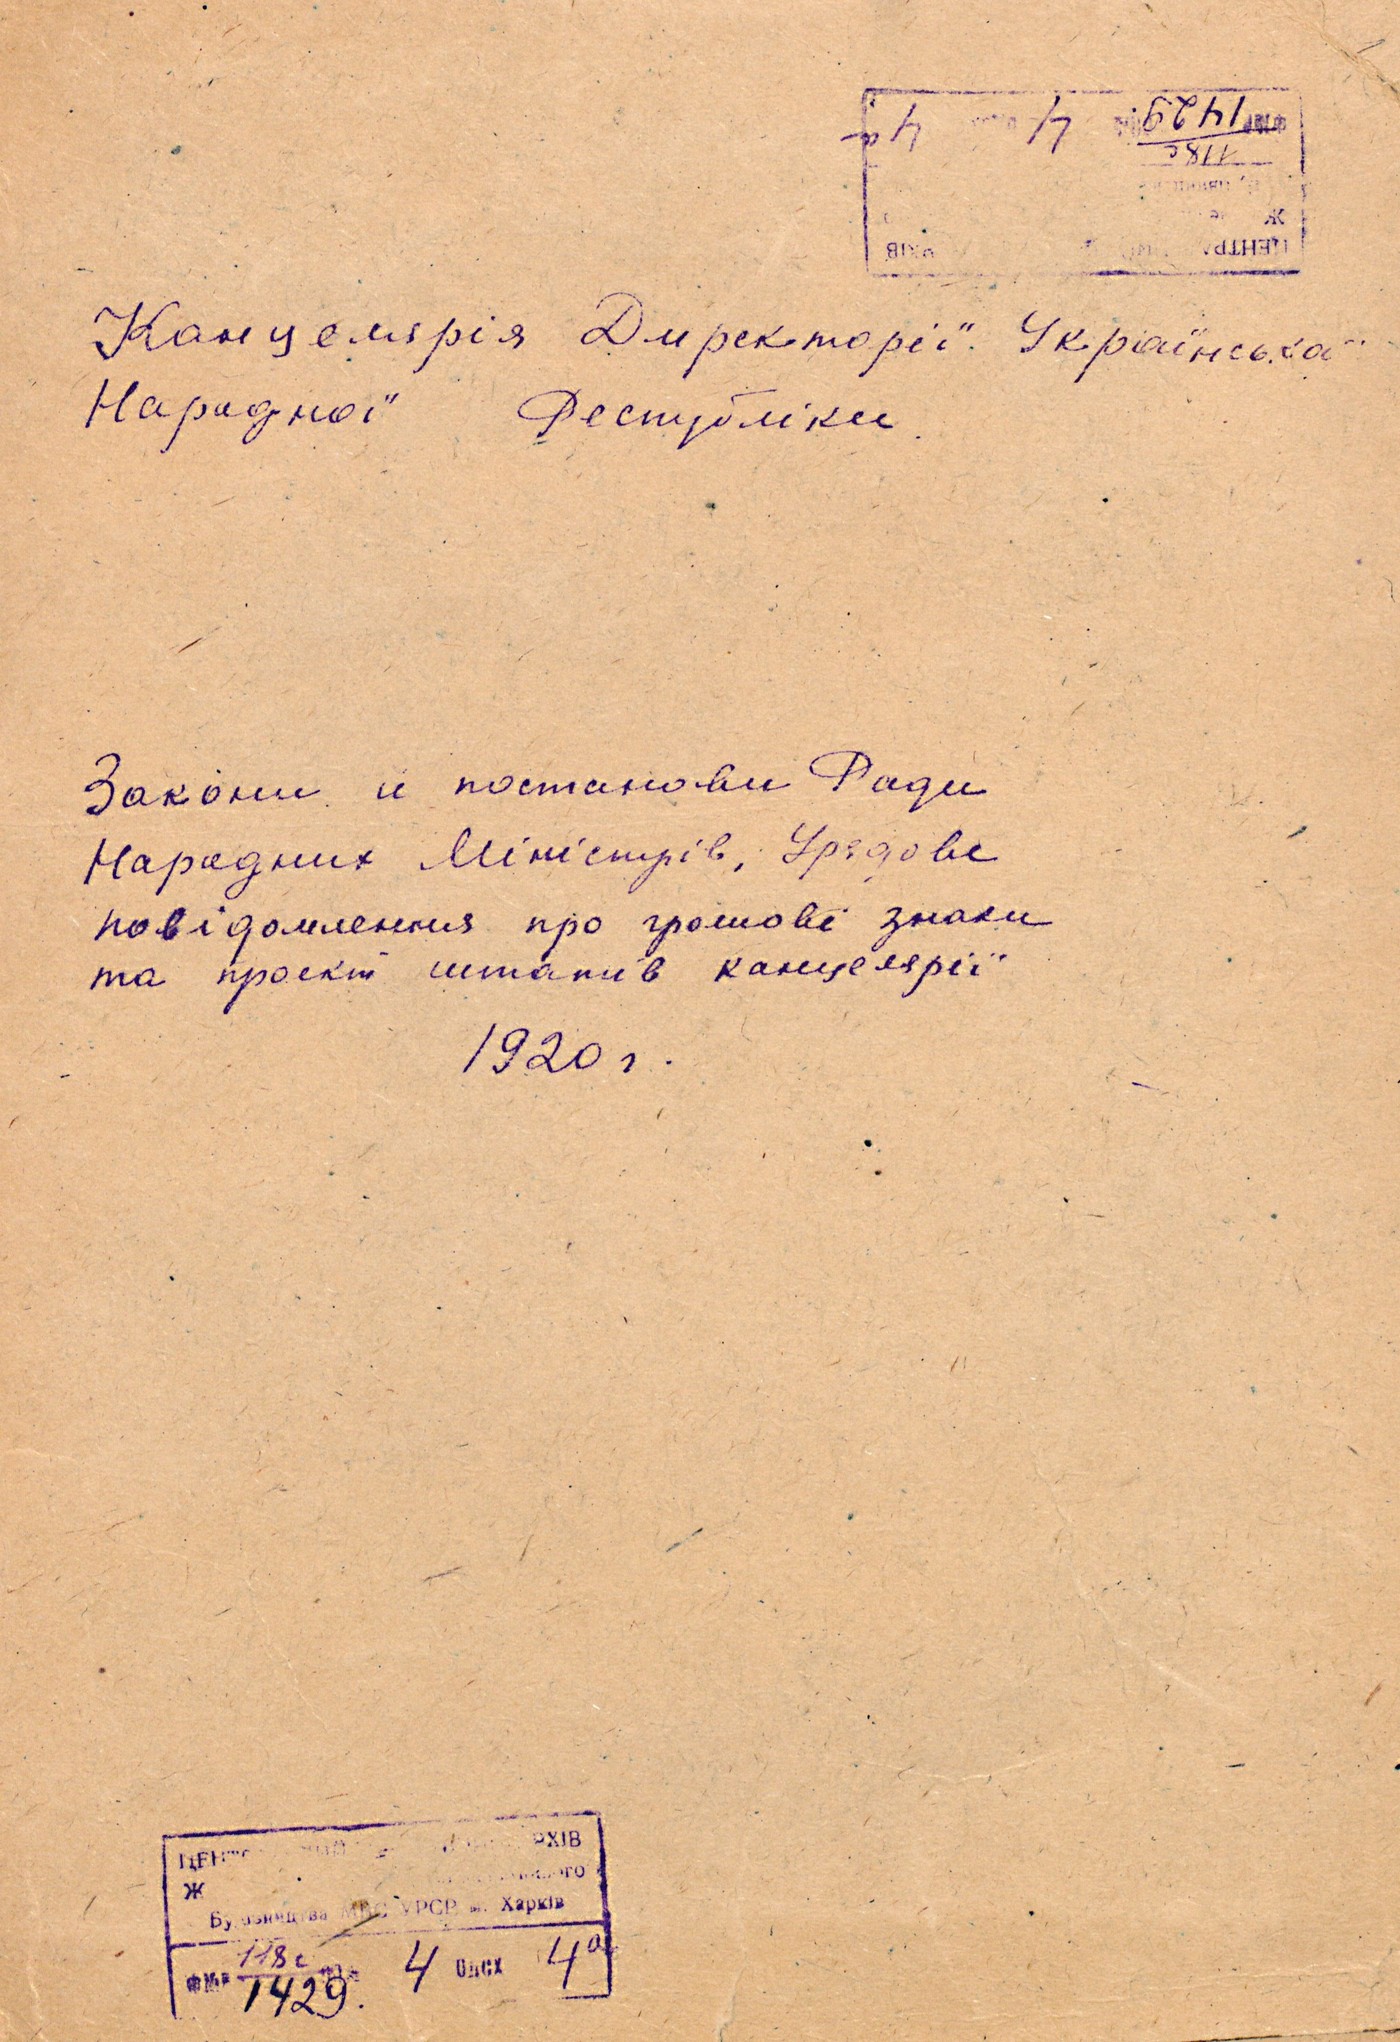 118с
1429
4
4а
Канцелярія Директорії Українська
Народної Республіки
Закони и постанови Ради
Народних Міністрів, Урядове
повідомлення про грошові знаки
та проект штатів канцелярії
1920 г.
АРХІВ
Ж
Будівництва МВС УРСР м. Харків
118с
1429. 4 опис 4а